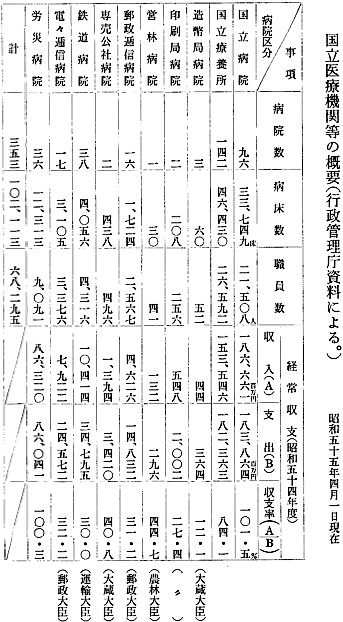 国立医療機関等の概要(行政管理庁資料による。)
昭和五十五年四月一日現在
事項 病院区分 病院数 病床数 職員数 経常収支(昭和五十四年度) 収入(A) 支出(B) 収支率(A/B)
国立病院 九六 三三、七四九床 二一、五〇八人 一八六、六六一百万円 一八三、八六四百万円 一〇一・五%
国立療養所 一四二 四六、四三〇 二六、五九二 一五三、五四六 一八二、三六三 八四・一
造幣局病院 三 六〇 五二 四四 三六四 一二・一 (大蔵大臣)
印刷局病院 二 二〇八 二五六 五四八 二、〇〇二 二七・四 (〃)
営林病院 一 三〇 四一 一三二 二九六 四四・七 (農林大臣)
郵政逓信病院 一六 一、七二四 二、五六七 四、六二六 一四、八三二 三一・二 (郵政大臣)
専売公社病院 二 四三八 四九六 一、三九四 三、四二〇 四〇・八 (大蔵大臣)
鉄道病院 三八 四、〇五六 四、三一六 一〇、四一四 三四、七九五 三〇・〇 (運輸大臣)
電々逓信病院 一七 三、一〇五 三、三七六 七、九二二 二四、五七二 三二・二 (郵政大臣)
労災病院 三六 一二、三一三 九、〇九一 八六、三二〇 八六、〇四一 一〇〇・三
計 三五三 一〇二、一一三 六八、二九五